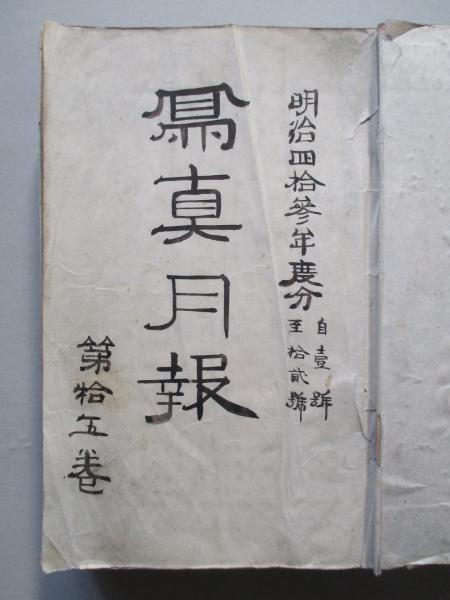 明治四拾參年度分
自壹號
至拾貳號
寫眞月報
第拾五卷